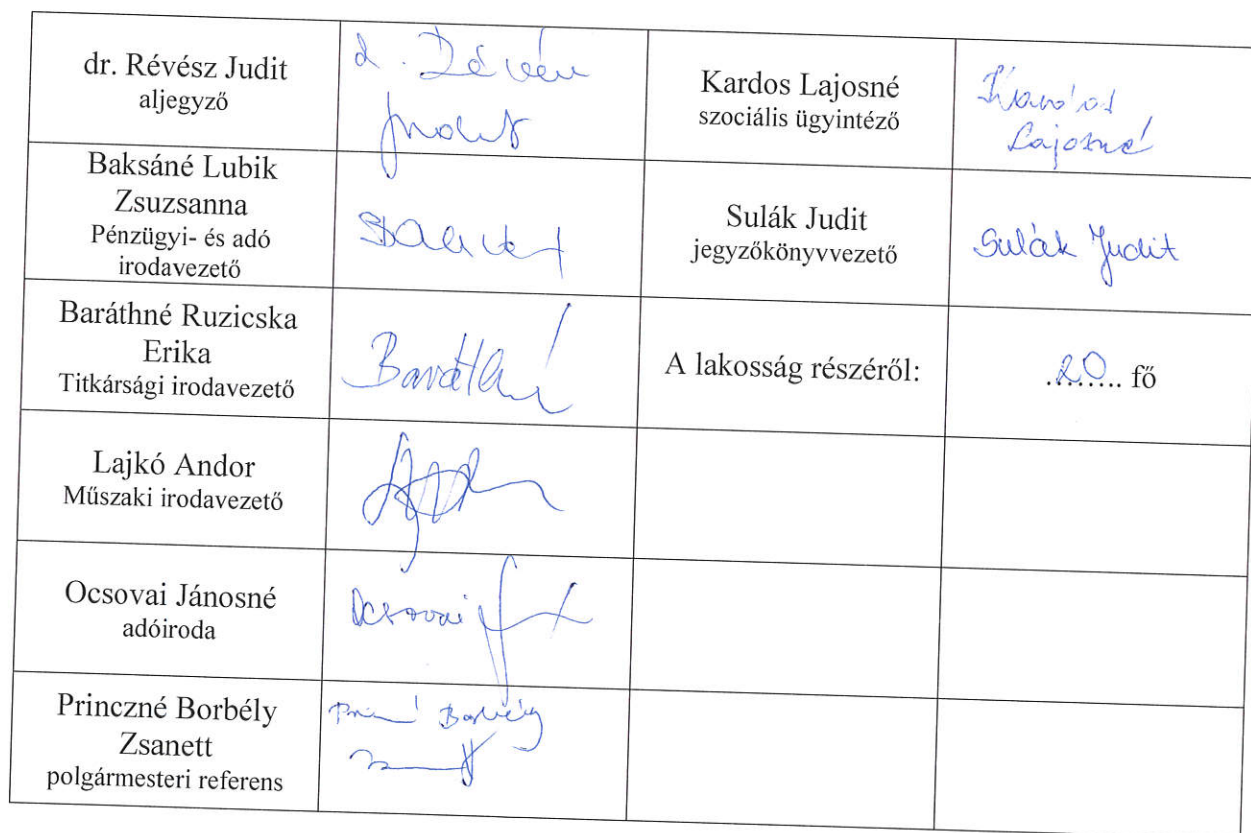 dr. Révész Judit
aljegyző
Judit
Kardos Lajosné
szociális ügyintéző
Kardos
Lajosné
Baksáné Lubik
Zsuzsanna
Pénzügyi- és adó
irodavezető
Sulák Judit
jegyzőkönyvvezető
Sulák Judit
Baráthné Ruzicska
Erika
Titkársági irodavezető
Baráthné
A lakosság részéről:
20 fő
Lajkó Andor
Műszaki irodavezető
Ocsovai Jánosné
adóiroda
Ocsovai
Princzné Borbély
Zsanett
polgármesteri referens
Borbély